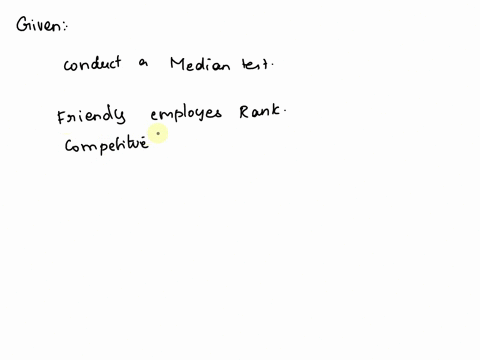 Given:-
conduct a Median test.
Friendly employes Rank.
Competitive